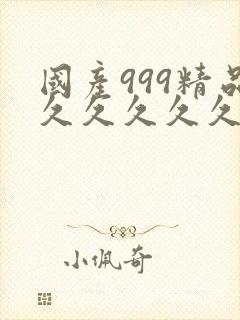 國產999精品
久久久久久
小佩奇